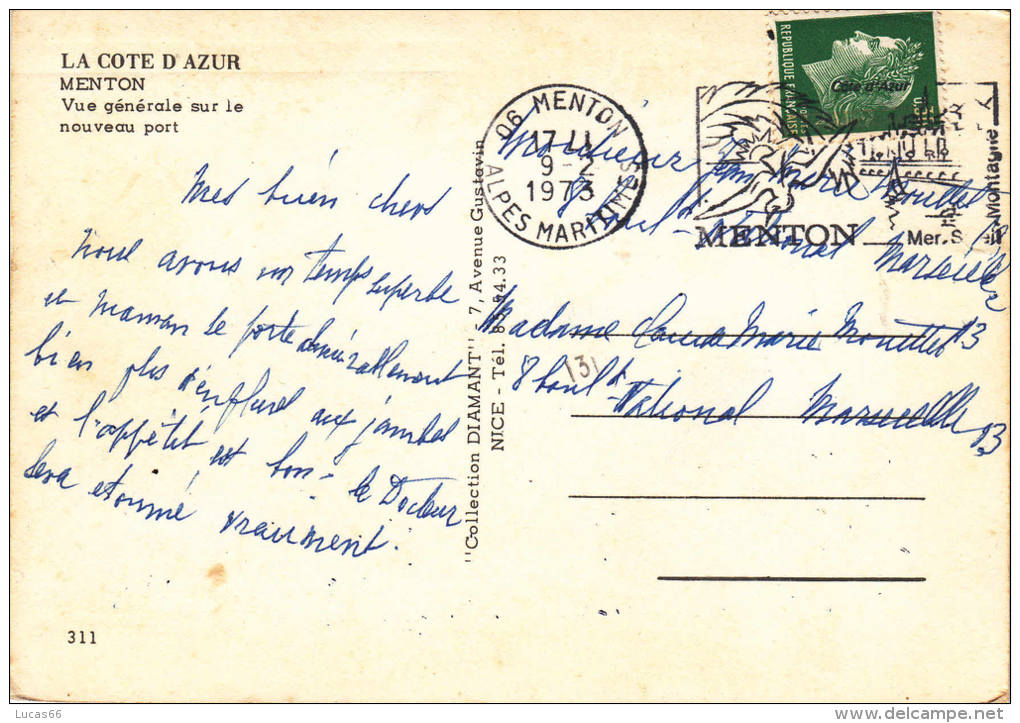 LA COTE D'AZUR
MENTON
Vue générale sur le
nouveau port
Mes bien chers
Nous avons un temps superbe
et Maman se porte admirablement
bien plus d'enflures aux jambes
et l'appétit est bon - le Docteur
sera étonné vraiment.
311
"Collection DIAMANT" 7, Avenue Gustavin
NICE - Tél. 85.54.33
06 MENTON
17 H
9-2
1973
ALPES MARITIMES
REPUBLIQUE FRANÇAISE
Côte d'Azur
MENTON
Mer. Montagne
Monsieur Jean Marie
8 Boul-d National Marseille
13
Madame Marie 13
8 boul-d
National Marseille
13
131
Lucas66